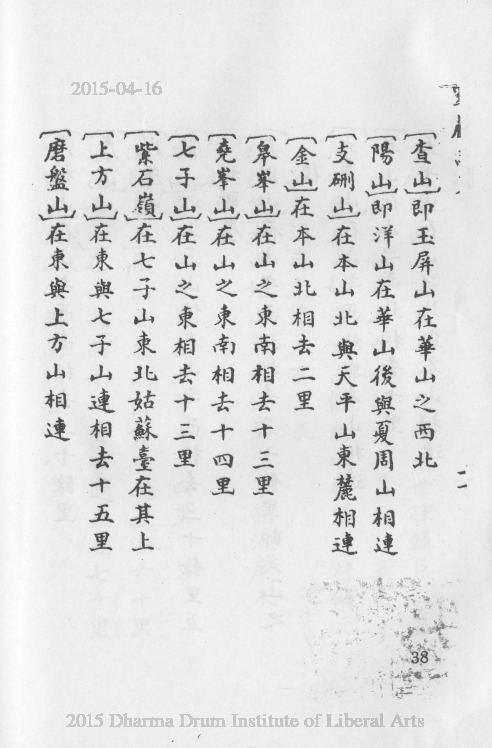 2015-04-16
〔查山〕即玉屏山在華山之西北
〔陽山〕即洋山在華山後與夏周山相連
〔支硎山〕在本山北與天平山東麓相連
〔金山〕在本山北相去二里
〔皋峯山〕在山之東南相去十三里
〔堯峯山〕在山之東南相去十四里
〔七子山〕在山之東相去十三里
〔紫石嶺〕在七子山東北姑蘇臺在其上
〔上方山〕在東與七子山連相去十五里
〔磨盤山〕在東與上方山相連
38
2015 Dharma Drum Institute of Liberal Arts